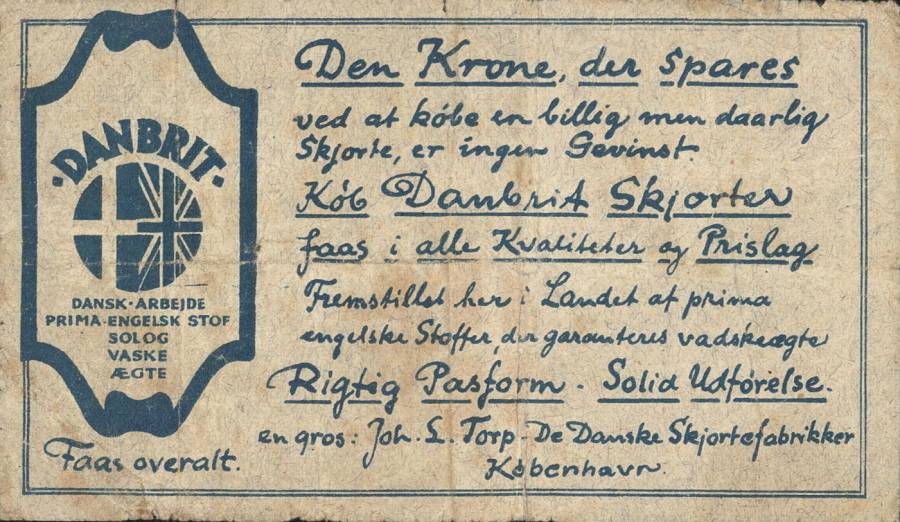 ·DANBRIT·
DANSK·ARBEJDE
PRIMA·ENGELSK STOF
SOLOG
VASKE
ÆGTE
Faas overalt.
Den Krone, der spares
ved at købe en billig men daarlig
Skjorte, er ingen Gevinst.
Køb Danbrit Skjorter
faas i alle Kvaliteter og Prislag
Fremstillet her i Landet af prima
engelske Stoffer, der garanteres vadskeægte
Rigtig Pasform - Solid Udførelse.
en gros: Joh. L. Torp - De Danske Skjortefabrikker
København.